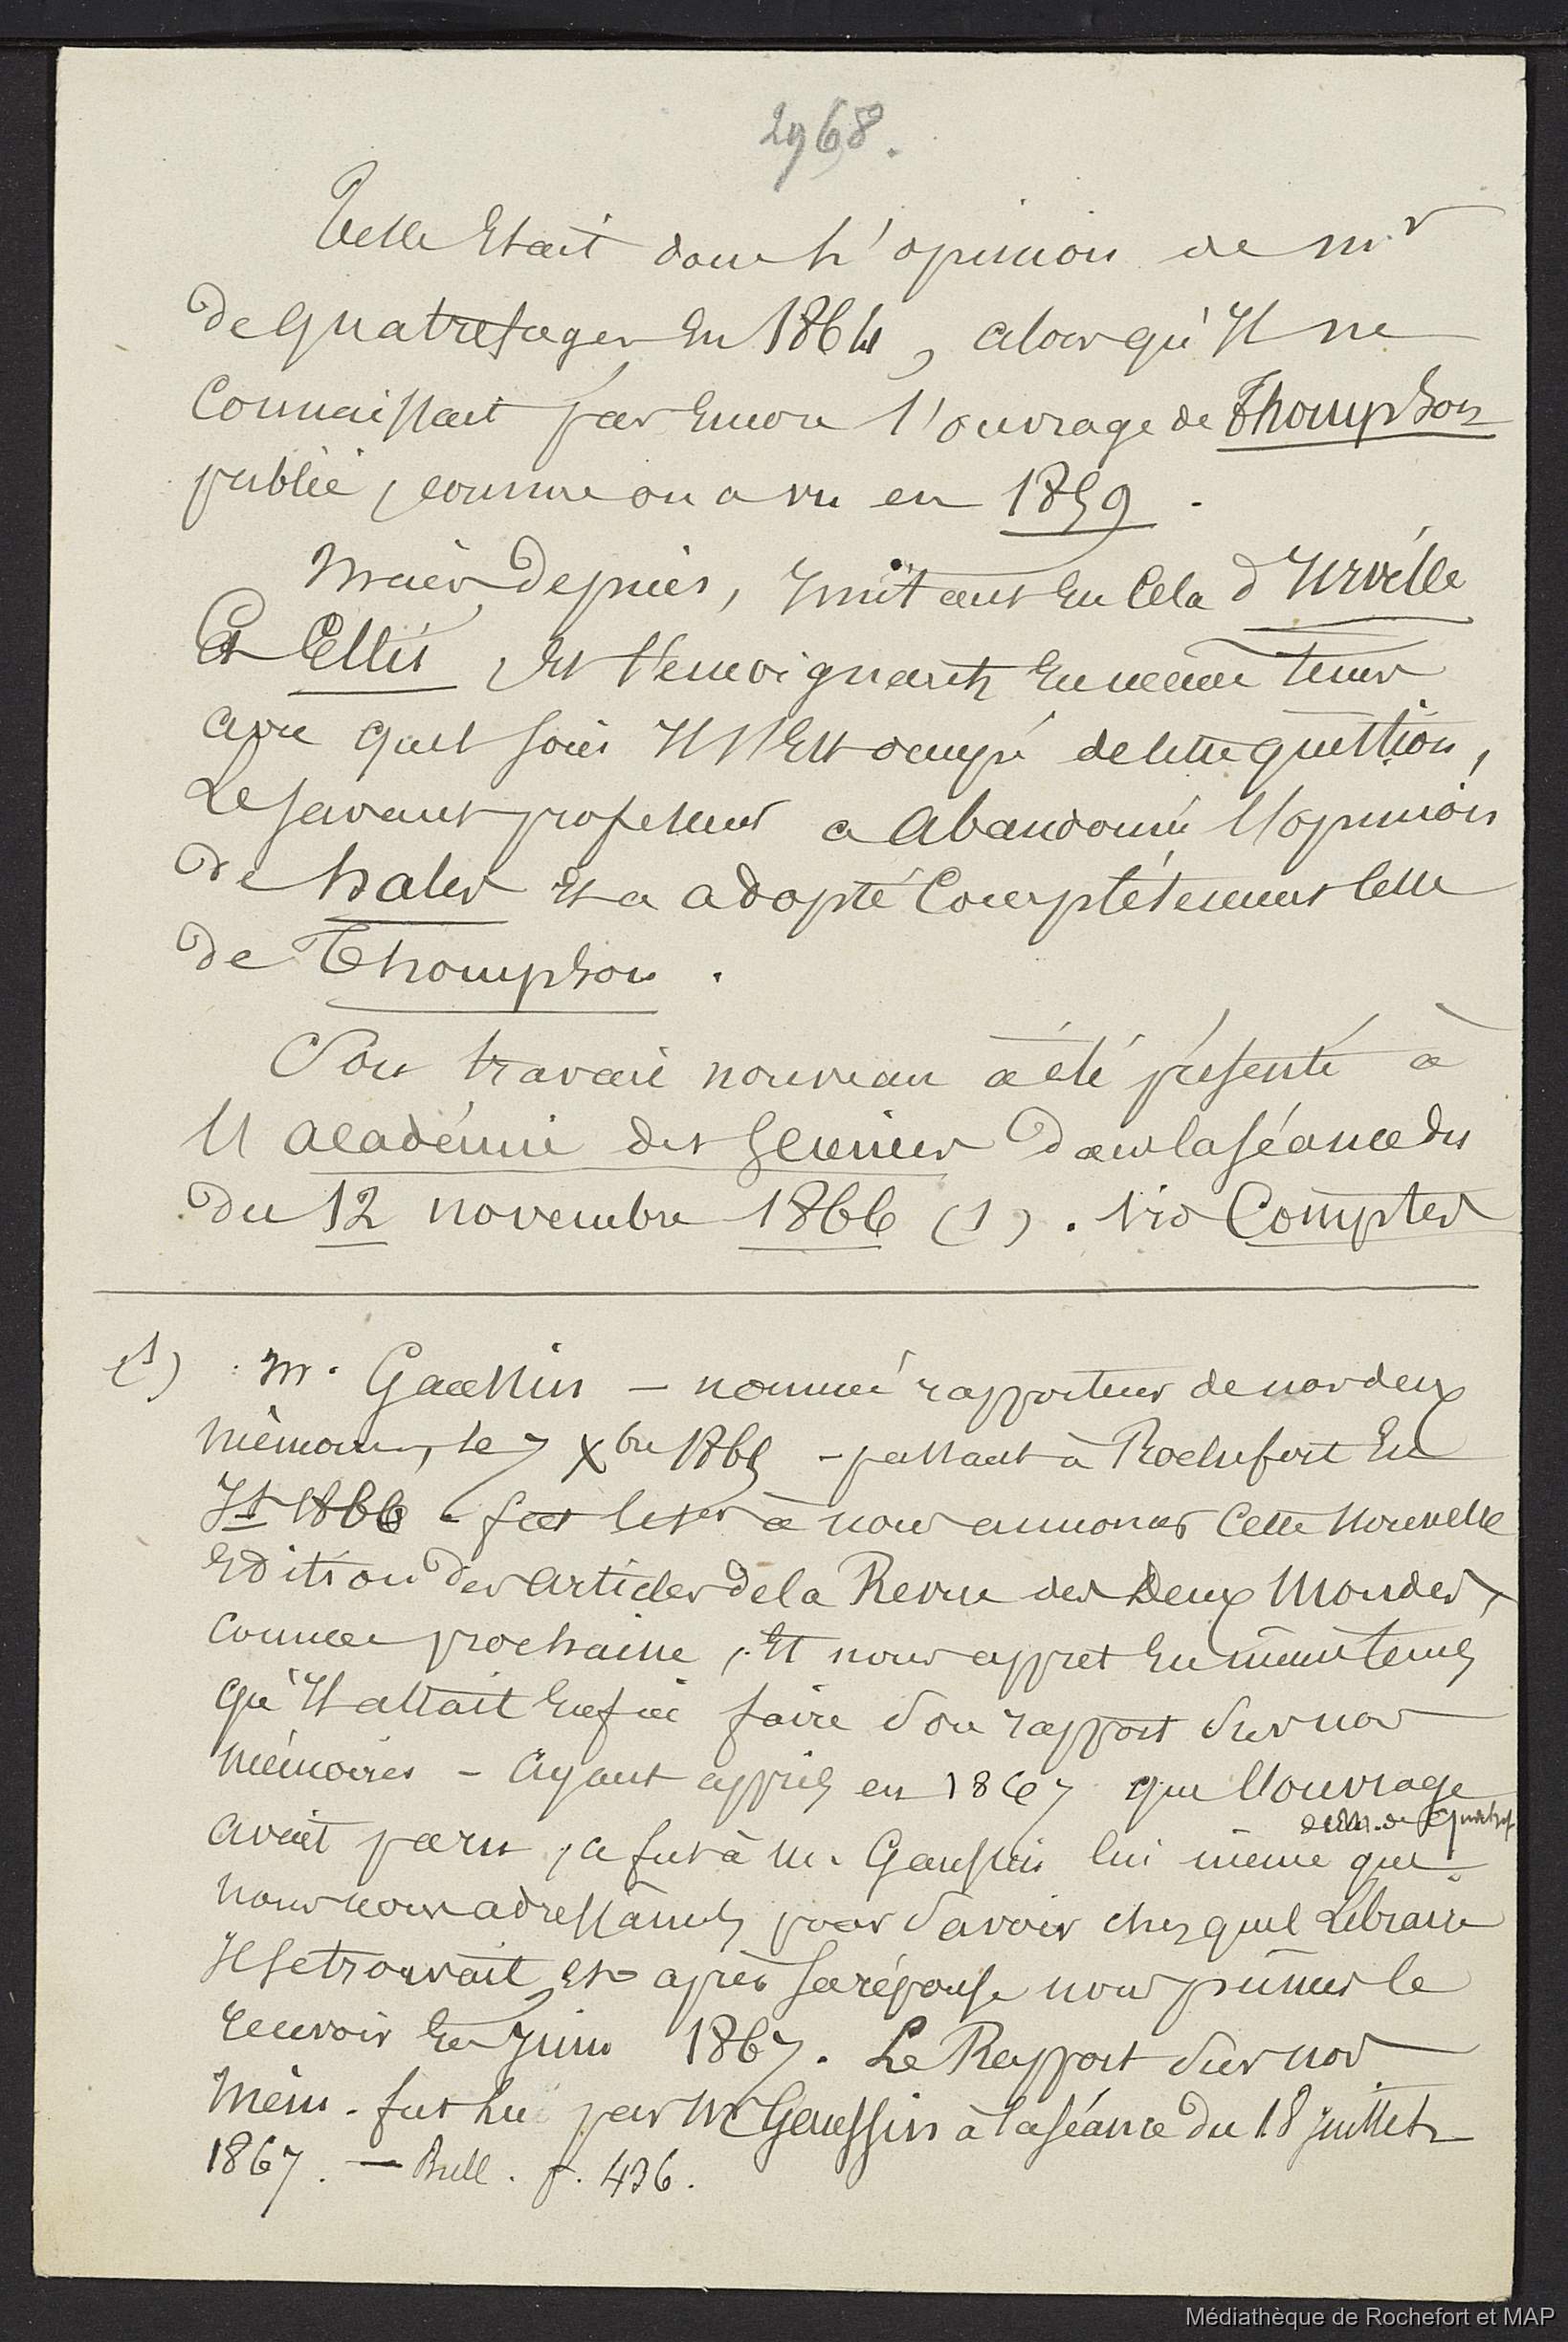 2968.
Telle Etait donc l'opinion de Mr
de Quatrefages En 1864, alors qu'Il ne
Connaissait pas Encore l'ouvrage de Thompson
publié, comme on a vu en 1859.
Mais depuis, Imitant En Cela d'Urville
Et Ellis, Et témoignant En même tems
avec quel soin Il s'Est occupé de cette question,
Le savant professeur a abandonné l'opinion
de hales Et a adopté Complétement celle
de Thompson.
Son travail nouveau a été présenté à
l'Académie des Sciences dans la séance du
du 12 novembre 1866 (1). Vid Comptes
(1) M. Gaussin – nommé rapporteur de nos deux
mémoires, le 7 Xbre 1865 – passant à Rochefort En
1866 – à nous annoncer Cette Nouvelle
Edition des articles de la Revue des Deux Mondes,
comme prochaine, Et nous apprit En même tems
qu'Il allait Enfin faire son rapport sur nos
mémoires – Ayant appris en 1867 que l'ouvrage
de M. de Quatref
avait paru, ce fut à M. Gaussin lui même que
nous nous adressâmes pour savoir chez quel Libraire
Il se trouvait Et après sa réponse nous pûmes le
recevoir En Juin 1867. Le Rapport sur nos
Mém. fut lu par Mr Gaussin à la séance du 18 Juillet
1867. — Bull. p. 436.
Médiathèque de Rochefort et MAP